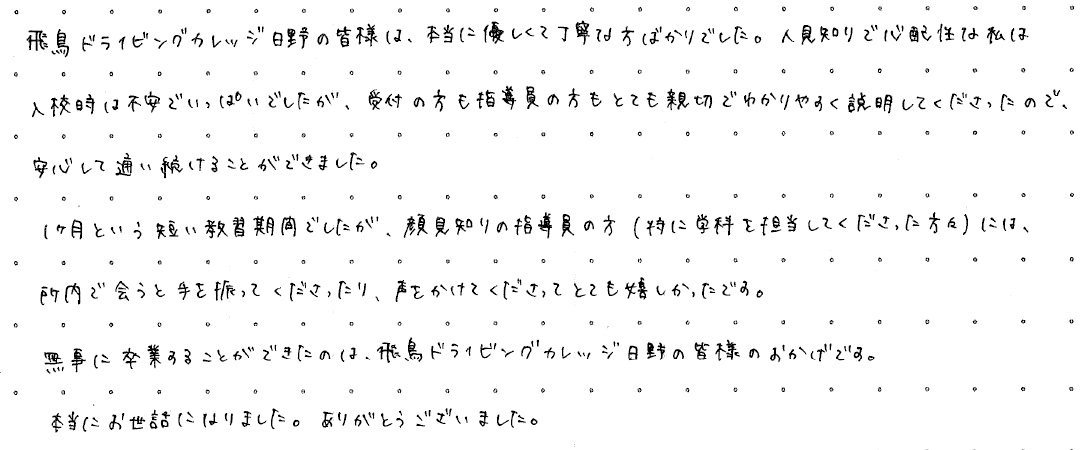 飛鳥ドライビングカレッジ日野の皆様は、本当に優しくて丁寧な方ばかりでした。人見知りで心配性な私は
入校時は不安でいっぱいでしたが、受付の方も指導員の方もとても親切でわかりやすく説明してくださったので、
安心して通い続けることができました。
1ヶ月という短い教習期間でしたが、顔見知りの指導員の方(特に学科を担当してくださった方々)には、
所内で会うと手を振ってくださったり、声をかけてくださってとても嬉しかったです。
無事に卒業することができたのは、飛鳥ドライビングカレッジ日野の皆様のおかげです。
本当にお世話になりました。ありがとうございました。